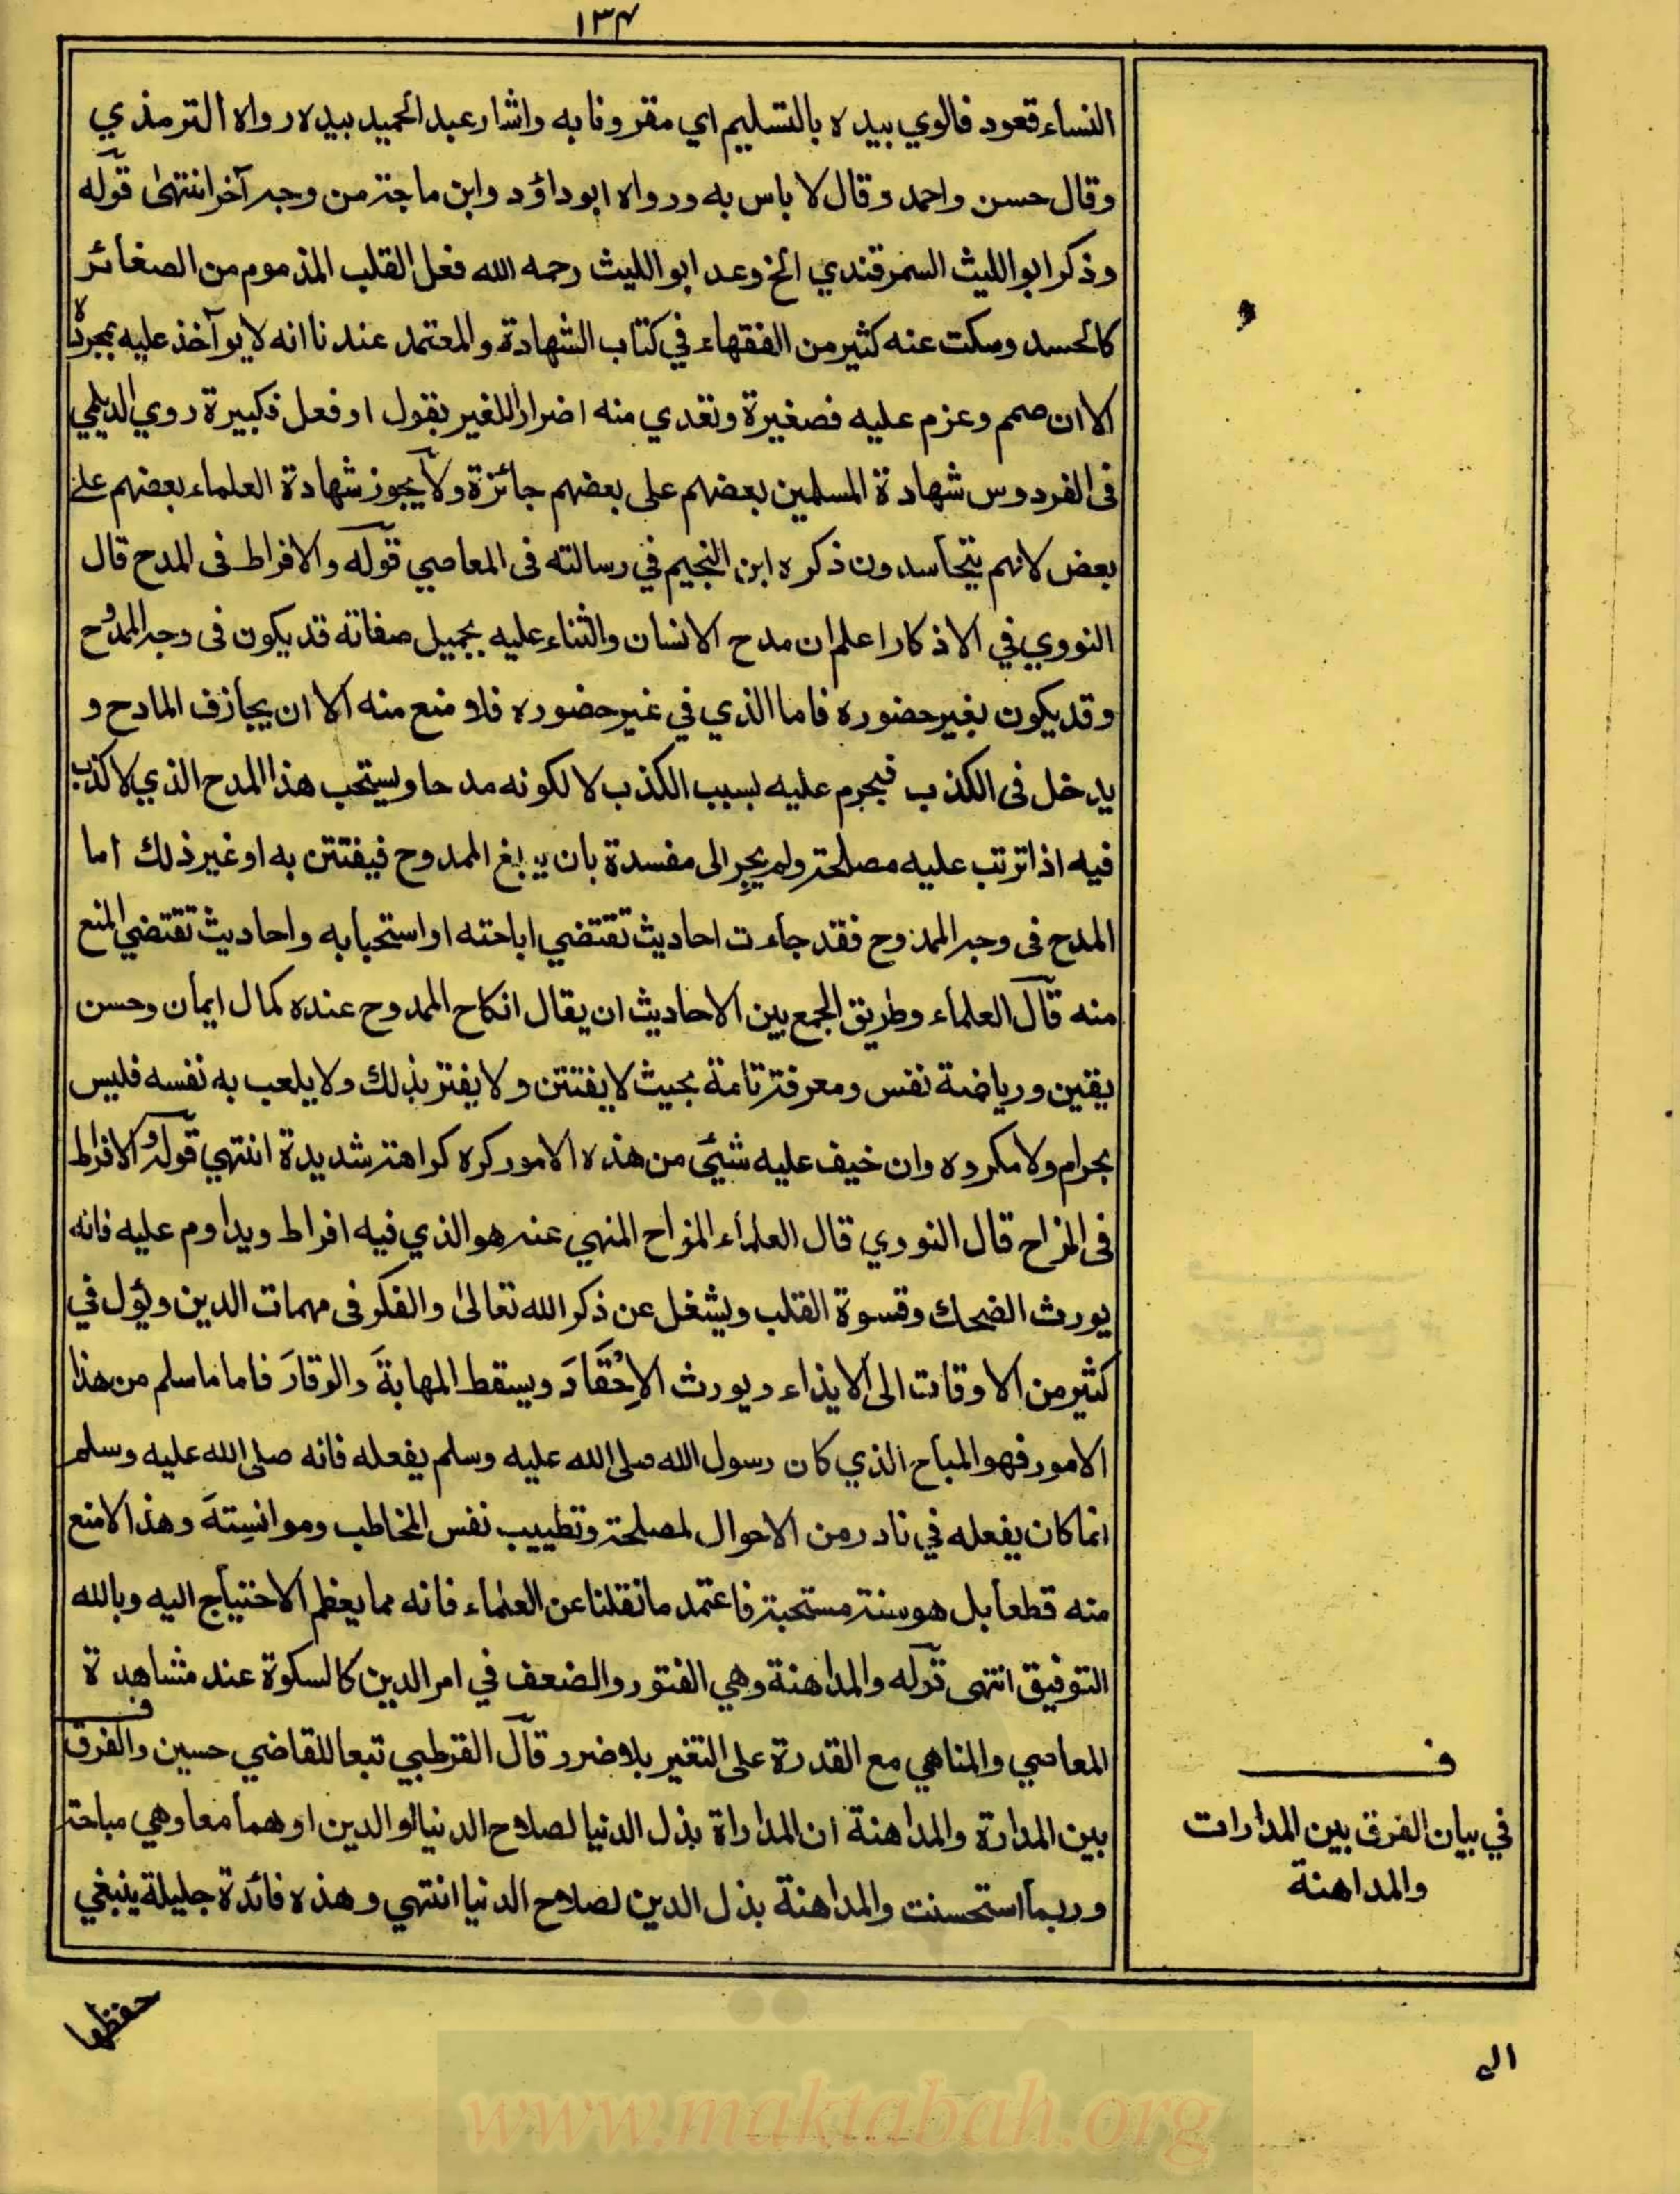 ١٣٤
النساء قعود فالوي بيده بالتسليم اي مقرونا به واشار عبد الحميد بيده رواه الترمذي
وقال حسن واحمد وقال لا باس به ورواه ابو داؤد وابن ماجة من وجه آخر انتهى قوله
وذكر ابو الليث السمرقندي الخ وعد ابو الليث رحمه الله فعل القلب المذموم من الصغائر
كالحسد وسكت عنه كثير من الفقهاء في كتاب الشهادة والمعتمد عندنا انه لا يوآخذ عليه بمجرده
الا ان صمم وعزم عليه فصغيرة وتعدي منه اضرارا للغير بقول او فعل فكبيرة روي الديلمي
فى الفردوس شهادة المسلمين بعضهم على بعضهم جائزة ولا يجوز شهادة العلماء بعضهم على
بعض لانهم يتحاسدون ذكره ابن النجيم في رسالته فى المعاصي قوله والافراط فى المدح قال
النووي في الاذكار اعلم ان مدح الانسان والثناء عليه بجميل صفاته قد يكون فى وجه الممدوح
وقد يكون بغير حضوره فاما الذي في غير حضوره فلا منع منه الا ان يجازف المادح و
يدخل فى الكذب فيحرم عليه بسبب الكذب لا لكونه مدحا ويستحب هذا المدح الذي لا كذب
فيه اذا ترتب عليه مصلحة ولم يجر الى مفسدة بان يبلغ الممدوح فيفتتن به او غير ذلك اما
المدح فى وجه الممدوح فقد جاءت احاديث تقتضي اباحته او استحبابه واحاديث تقتضي المنع
منه قال العلماء وطريق الجمع بين الاحاديث ان يقال ان كاح الممدوح عنده كمال ايمان وحسن
يقين ورياضة نفس ومعرفة تامة بحيث لا يفتتن ولا يغتر بذلك ولا يلعب به نفسه فليس
بحرام ولا مكروه وان خيف عليه شيئ من هذه الامور كره كراهة شديدة انتهي قوله والافراط
فى المزاح قال النووي قال العلماء المزاح المنهي عنه هو الذي فيه افراط ويداوم عليه فانه
يورث الضحك وقسوة القلب ويشغل عن ذكر الله تعالىٰ والفكر فى مهمات الدين ويؤل في
كثير من الاوقات الى الايذاء ويورث الاِحْقَادَ ويسقط المهابةَ والوقارَ فاما ما سلم من هذا
الامور فهو المباح الذي كان رسول الله صلى الله عليه وسلم يفعله فانه صلى الله عليه وسلم
انما كان يفعله في نادر من الاحوال لمصلحة وتطييب نفس المخاطب وموانسِتهَ وهذا لا منع
منه قطعا بل هو سنة مستحبة فاعتمد ما نقلنا عن العلماء فانه مما يعظم الاحتياج اليه وبالله
التوفيق انتهى قوله والمداهنة وهي الفتور والضعف في امر الدين كالسكوة عند مشاهدة
المعاصي والمناهي مع القدرة على التغير بلا ضرر قال القرطبي تبعا للقاضي حسين والفرق
بين المدارة والمداهنة ان المداراة بذل الدنيا لصلاح الدنيا او الدين او هما معا وهي مباحة
وربما استحسنت والمداهنة بذل الدين لصلاح الدنيا انتهي وهذه فائدة جليلة ينبغي
ف
في بيان الفرق بين المدارات
والمداهنة
حفظها
الى
www.maktabah.org